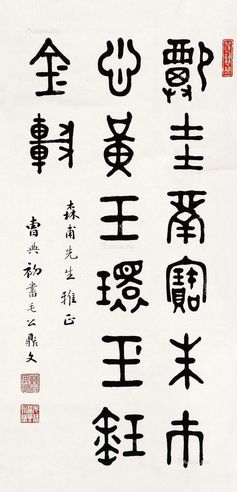 祼圭瓚寶朱市
悤黃玉環玉瑹
金車
森甫先生雅正
曹典初書毛公鼎文